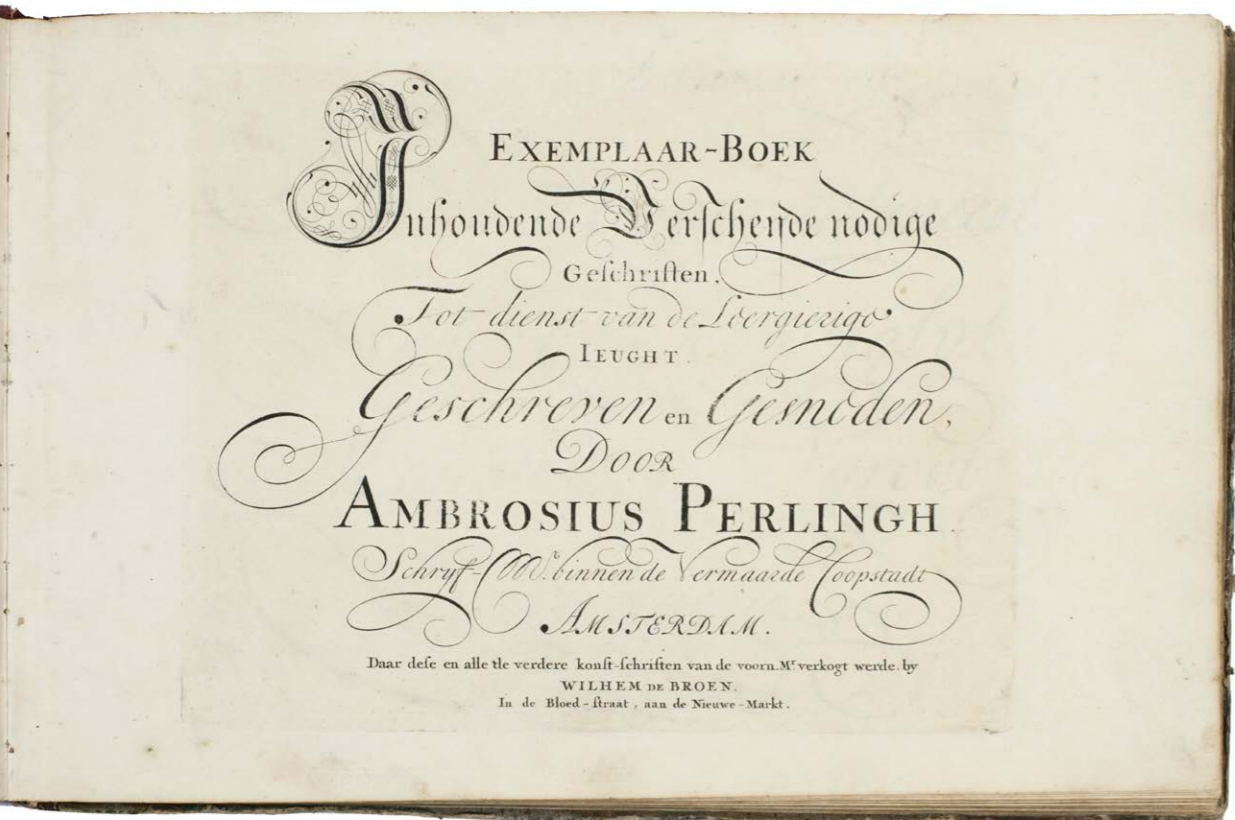 EXEMPLAAR-BOEK
Inhoudende Verscheyde nodige
Geschriften,
Tot dienst van de Leergierige
IEUGHT.
Geschreven en Gesneden,
DOOR
AMBROSIUS PERLINGH.
Schryf-Mr. binnen de Vermaarde Coopstadt
AMSTERDAM.
Daar dese en alle de verdere konst-schriften van de voorn. Mr. verkogt werde. by
WILHEM DE BROEN.
In de Bloed-straat, aan de Nieuwe-Markt.